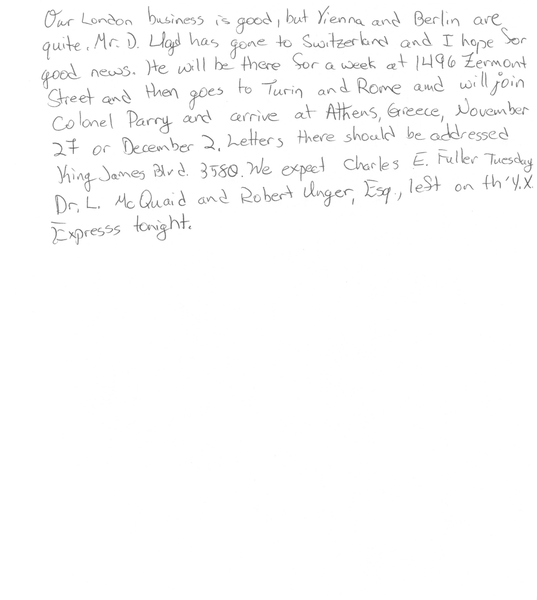 Our London business is good, but Vienna and Berlin are
quite. Mr. D. Llogd has gone to Switzerland and I hope for
good news. He will be there for a week at 1496 Zermont
Street and then goes to Turin and Rome and will join
Colonel Parry and arrive at Athens, Greece, November
27 or December 2. Letters there should be addressed
King James Blvd. 3580. We expect Charles E. Fuller Tuesday
Dr. L. McQuaid and Robert Unger, Esq., left on th' Y.X.
Expresss tonight.